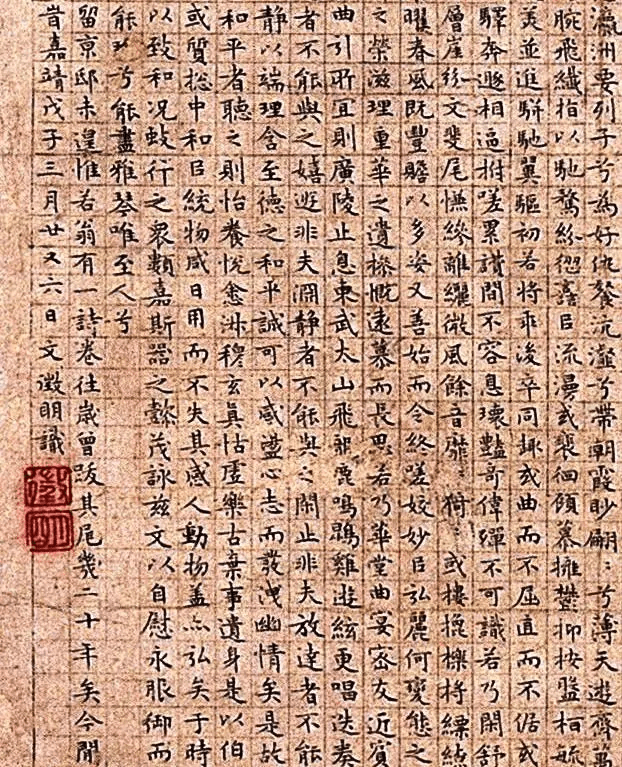 瀛洲要列子兮為好仇餐沆瀣兮帶朝霞眇翩〻兮薄天遊齊萬
腕飛纖指以馳騖紛譶以流漫或裴徊顧慕擁鬱抑按盤桓毓
羙並進駢馳翼驅初若將乖後卒同趣或曲而不屈直而不倨或
驛奔遯相逼拊嗟累讚間不容息瓌豔奇偉殫不可識若乃閑舒
層崖紛文斐尾慊縿離纚微風餘音靡〻猗〻或摟櫟捋縹繚
曜春風既豐贍以多姿又善始而令終嗟姣妙以弘麗何變態之
之榮滋理重華之遺操慨遠慕而長思若乃華堂曲宴密友近賓
曲引所宜則廣陵止息東武太山飛龍鹿鳴鵾雞遊絃更唱迭奏
者不能與之嬉遊非夫淵静者不能與之閑止非夫放達者不能
静以端理含至德之和平誠可以感盪心志而發洩幽情矣是故
和平者聽之則怡養悅愉淑穆玄真恬虛樂古棄事遺身是以伯
或質總中和以統物咸日用而不失其感人動物蓋亦弘矣于時
以致和况蚑行之衆類嘉斯器之懿茂詠兹文以自慰永服御而
能珍兮能盡雅琴唯至人兮
留京邸未遑惟若翁有一詩卷往歲曾跋其尾幾二十年矣今閒
旹嘉靖戊子三月廿又六日文徵明識
徵明